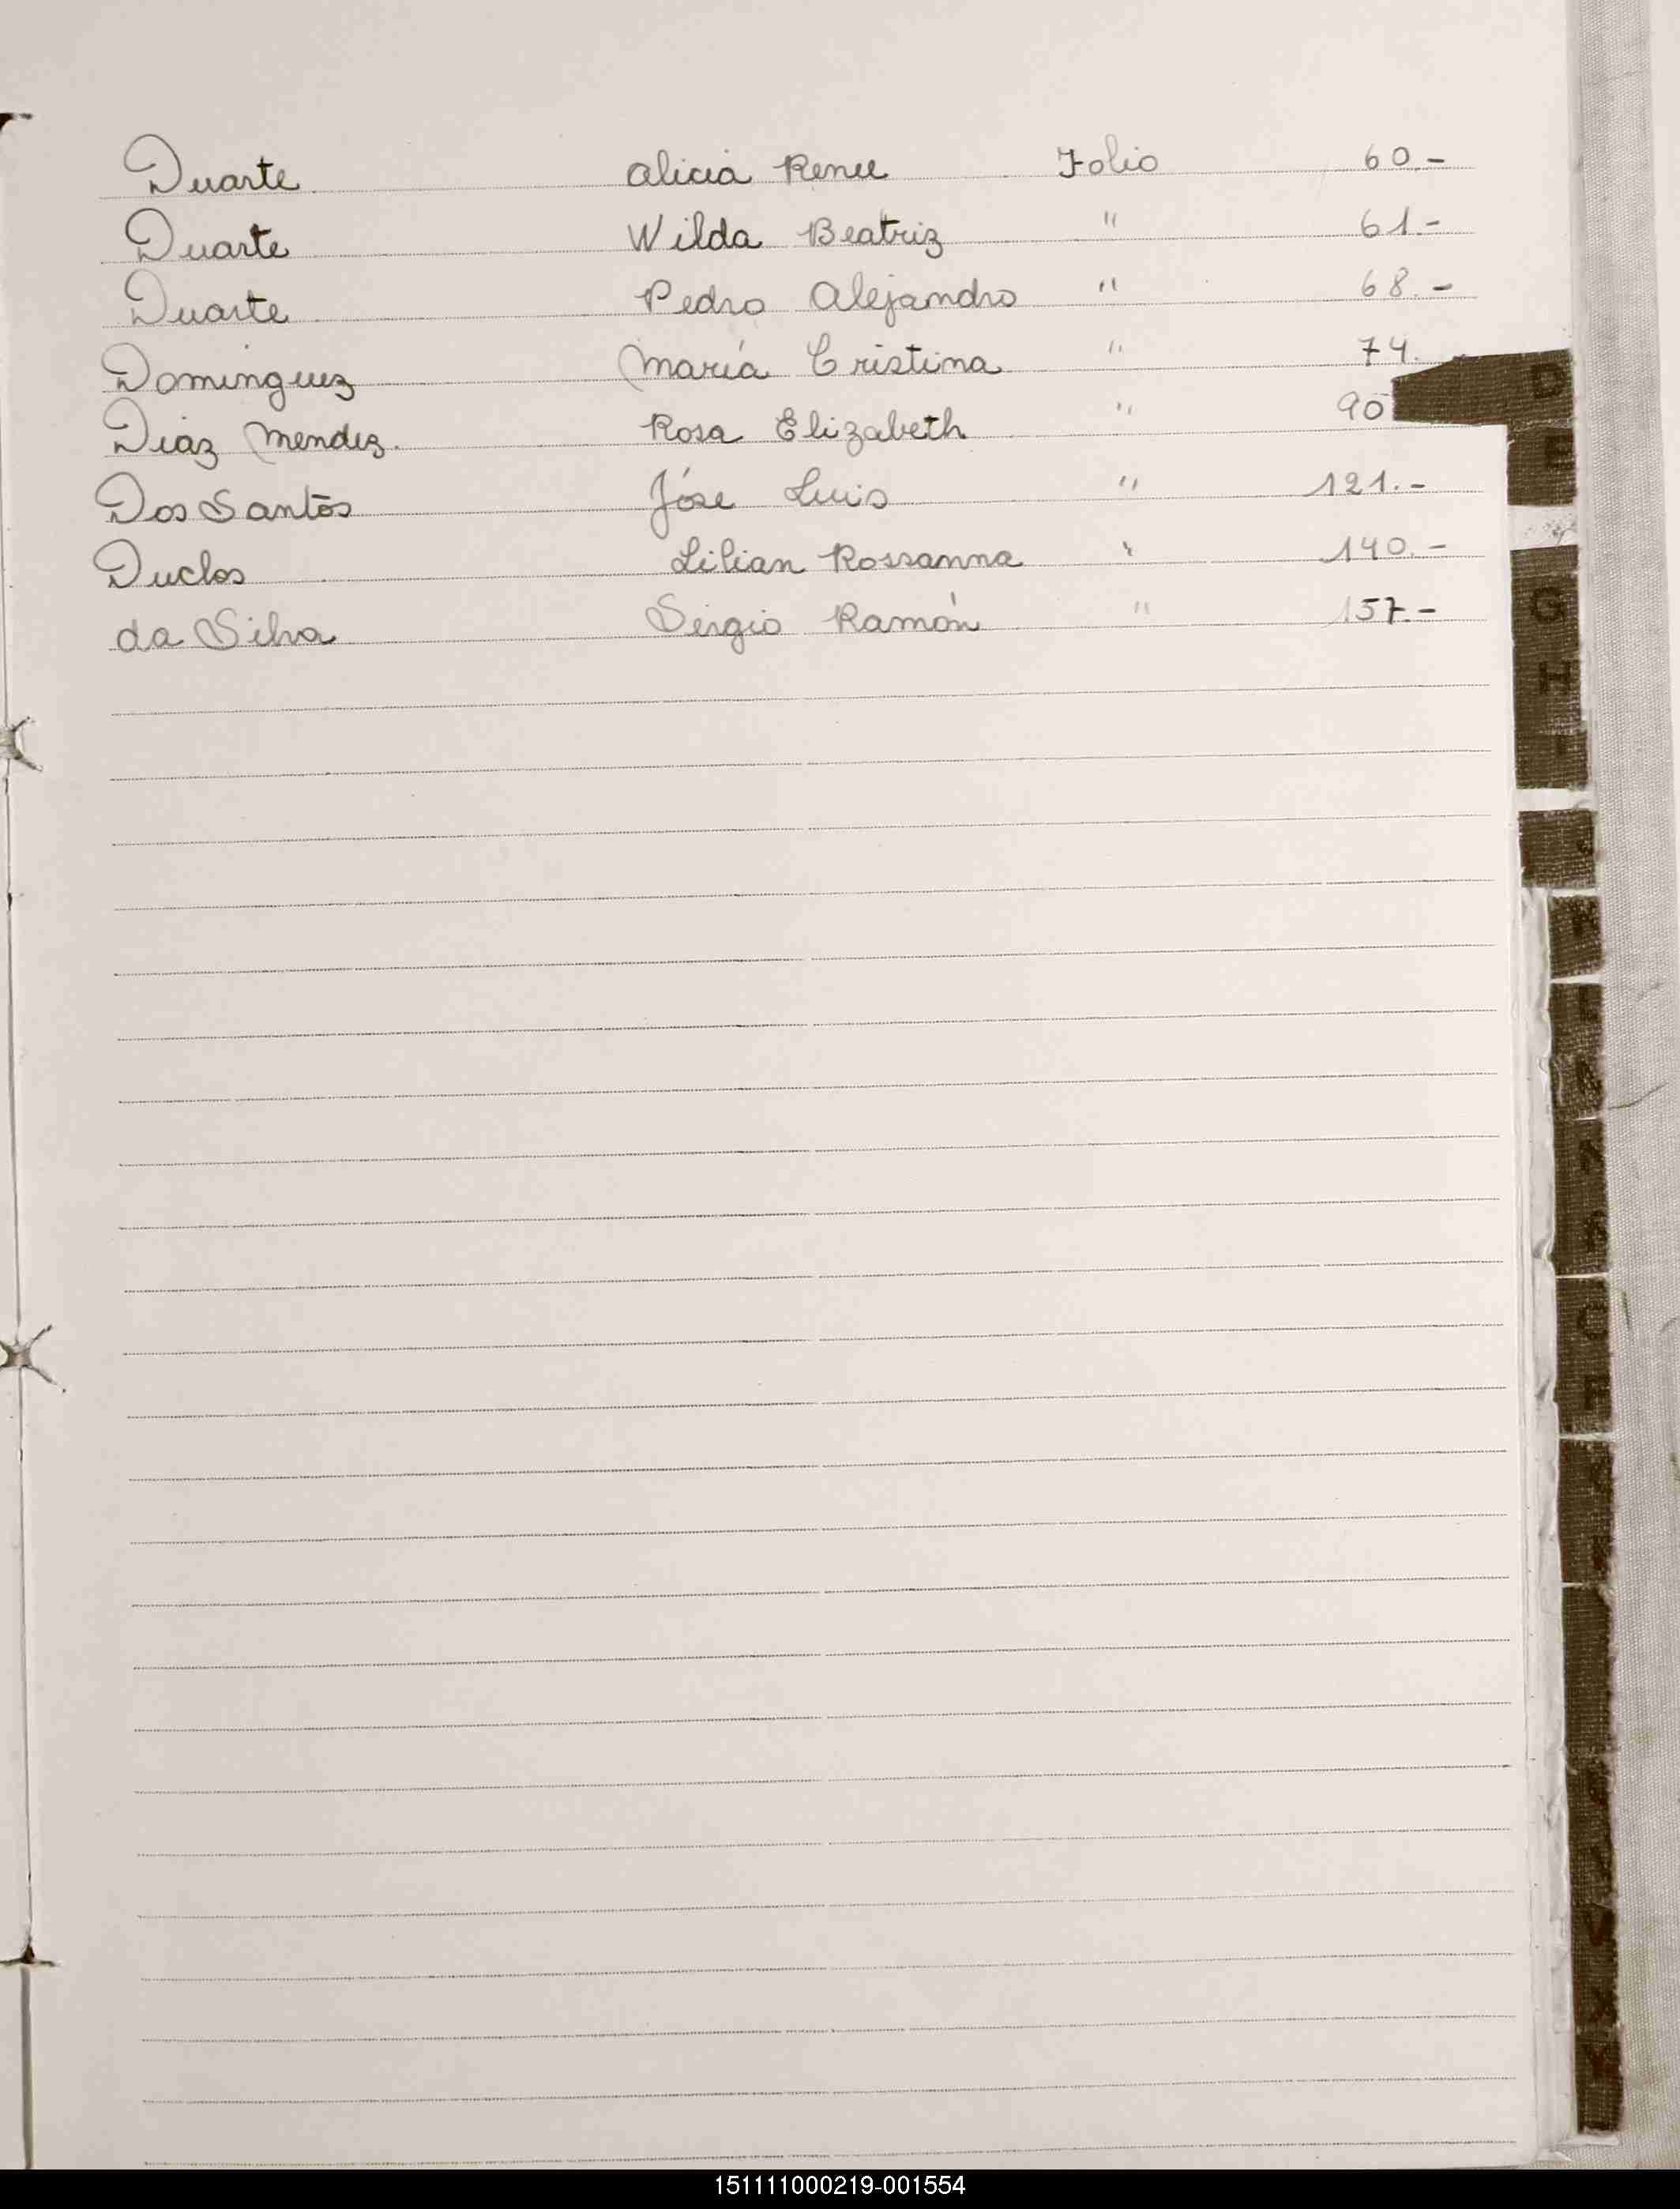 Duarte Alicia Renee Folio 60.-
Duarte Wilda Beatriz " 61.-
Duarte Pedro Alejandro " 68.-
Dominguez María Cristina " 74.-
Diaz Mendez. Rosa Elizabeth " 90
Dos Santos Jóse Luis " 121.-
Duclos Lilian Rossanna " 140.-
da Silva Sergio Ramón " 157.-
D
E
G
H
I
V
151111000219-001554